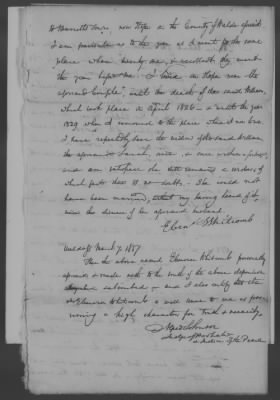 now Hope in the County of Waldo aforesaid
I am particular as to the year as I went to the same
place when twenty one, & recollect they went
the year before me. I lived in Hope near the
aforesaid Couple, until the death of the said William,
which took place in April 1826 — & until the year
1829, when I removed to the place where I now live.
I have repeatedly seen the widow of the said William
the aforesaid Sarah, since, & once within a
and am satisfied she still remains a widow, of
which facts there is no doubt. She could not
have been married, without my having heard of it,
since the decease of her aforesaid husband.
Eben Whitcomb
Waldo ss March 7, 1837
Then the above named Ebenezer Whitcomb personally
appeared & made oath to the truth of the above deposition
by him subscribed — and I also certify that the
Ebenezer Whitcomb is well known to me as
a high character for truth & veracity.
Johnson
Judge of Probate
& Justice of the Peace